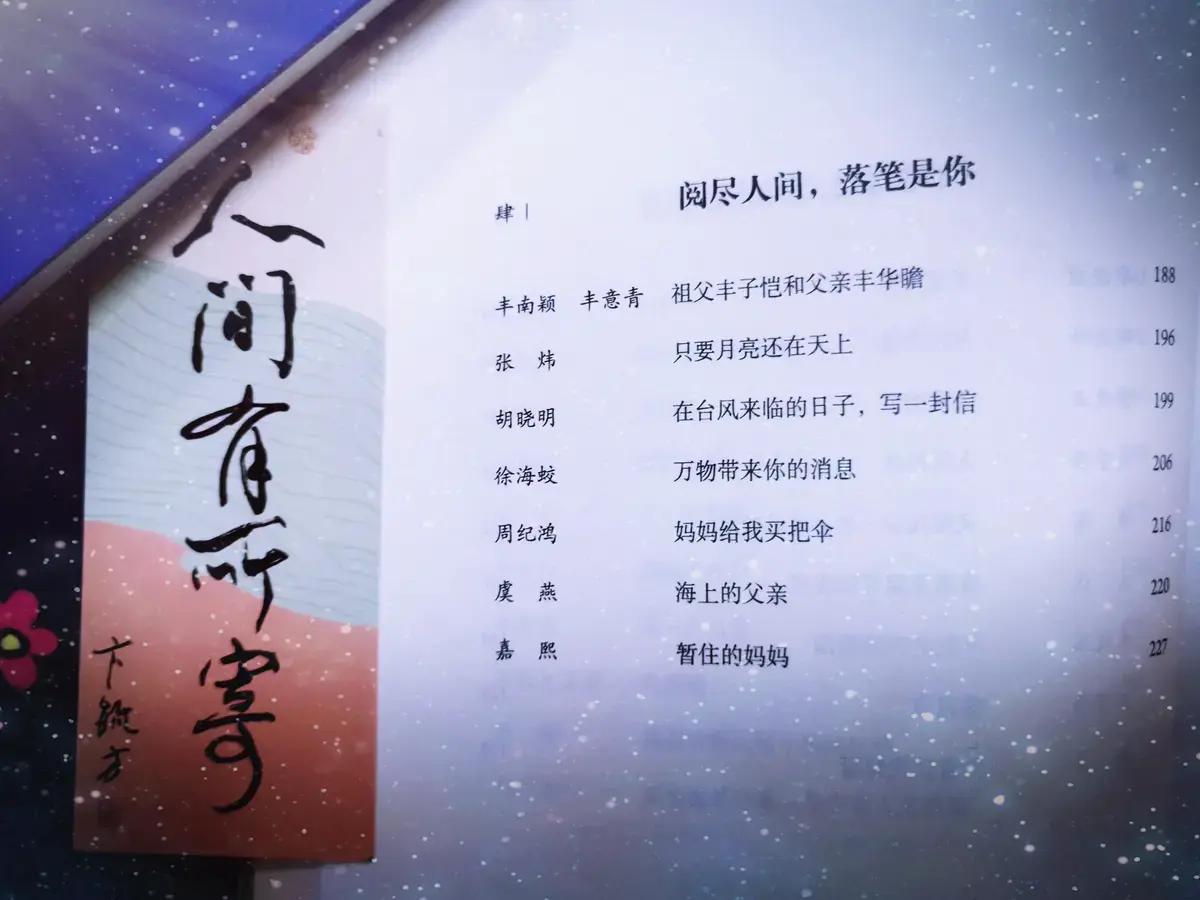 人间有所寄
肆 | 阅尽人间，落笔是你
丰南颖 丰意青 祖父丰子恺和父亲丰华瞻 188
张 炜 只要月亮还在天上 196
胡晓明 在台风来临的日子，写一封信 199
徐海蛟 万物带来你的消息 206
周纪鸿 妈妈给我买把伞 216
虞 燕 海上的父亲 220
嘉 熙 暂住的妈妈 227